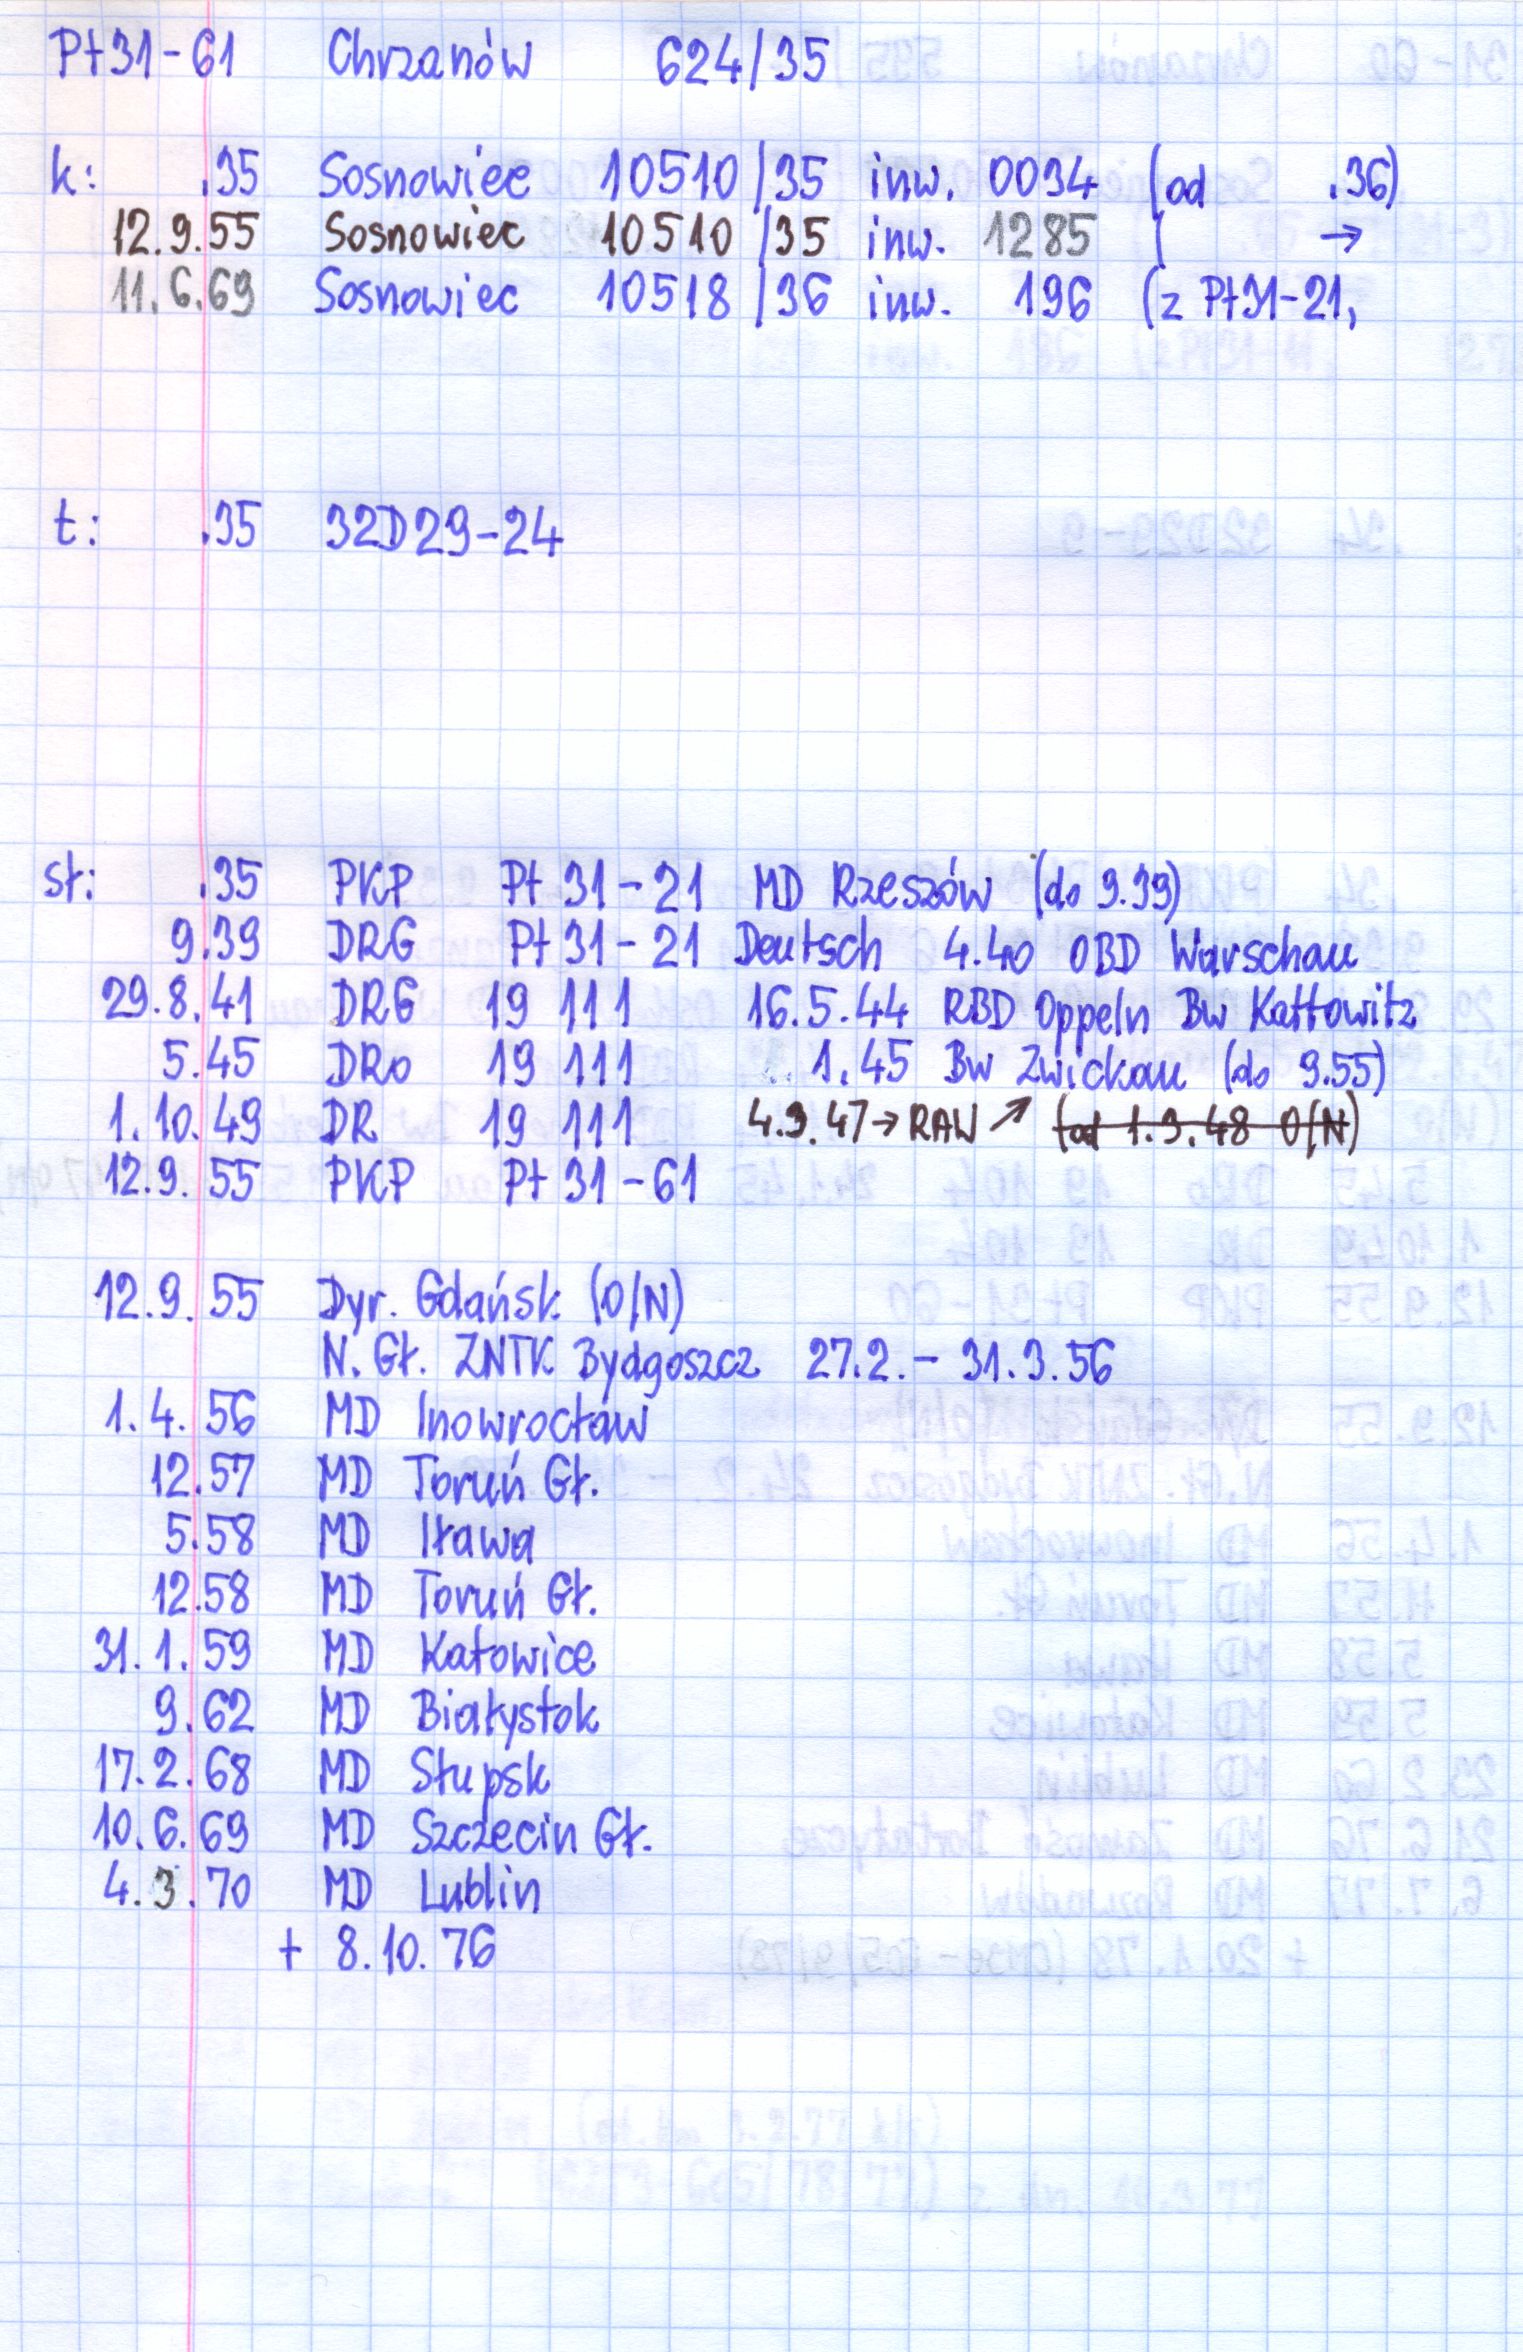 Pt31-61 Chrzanów 624/35
k: .35 Sosnowiec 10510/35 inw. 0034 (od .36)
12.9.55 Sosnowiec 10510/35 inw. 1285 ( →
11.6.69 Sosnowiec 10518/36 inw. 196 (z Pt31-21,
t: .35 32D29-24
sł: .35 PKP Pt 31-21 MD Rzeszów (do 9.39)
9.39 DRG Pt 31-21 Deutsch 4.40 OBD Warschau
29.8.41 DRG 19 111 16.5.44 RBD Oppeln Bw Kattowitz
5.45 DRo 19 111 1.45 Bw Zwickau (do 9.55)
1.10.49 DR 19 111 4.9.47→RAW ↗ (od 1.9.48 O(N)
12.9.55 PKP Pt 31-61
12.9.55 Dyr. Gdańsk (O/N)
N. Gł. ZNTK Bydgoszcz 27.2.-31.3.56
1.4.56 MD Inowrocław
12.57 MD Toruń Gł.
5.58 MD Iława
12.58 MD Toruń Gł.
31.1.59 MD Katowice
9.62 MD Białystok
17.2.68 MD Słupsk
10.6.69 MD Szczecin Gł.
4.3.70 MD Lublin
+ 8.10.76